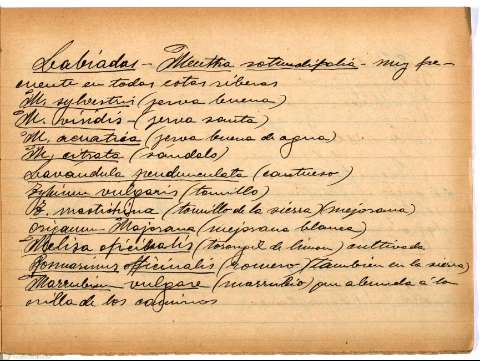 Labiadas - Mentha rotundifolia - muy fre-
cuente en todas estas riberas
M. sylvestris (yerva buena)
M. viridis - (yerva santa)
M. acuatica (yerva buena de agua)
M. citrata (sandalo)
Lavandula pedunculata (cantueso)
vulgaris (tomillo)
mastichina (tomillo de la sierra) (mejorana)
Origanum Majorana (mejorana blanca)
Meliza oficinalis (torongil de limon) cultivada
Rosmarinus officinalis (romero) (tambien en la sierra)
Marrubium vulgare (marrubio) abunda á la
orilla de los caminos